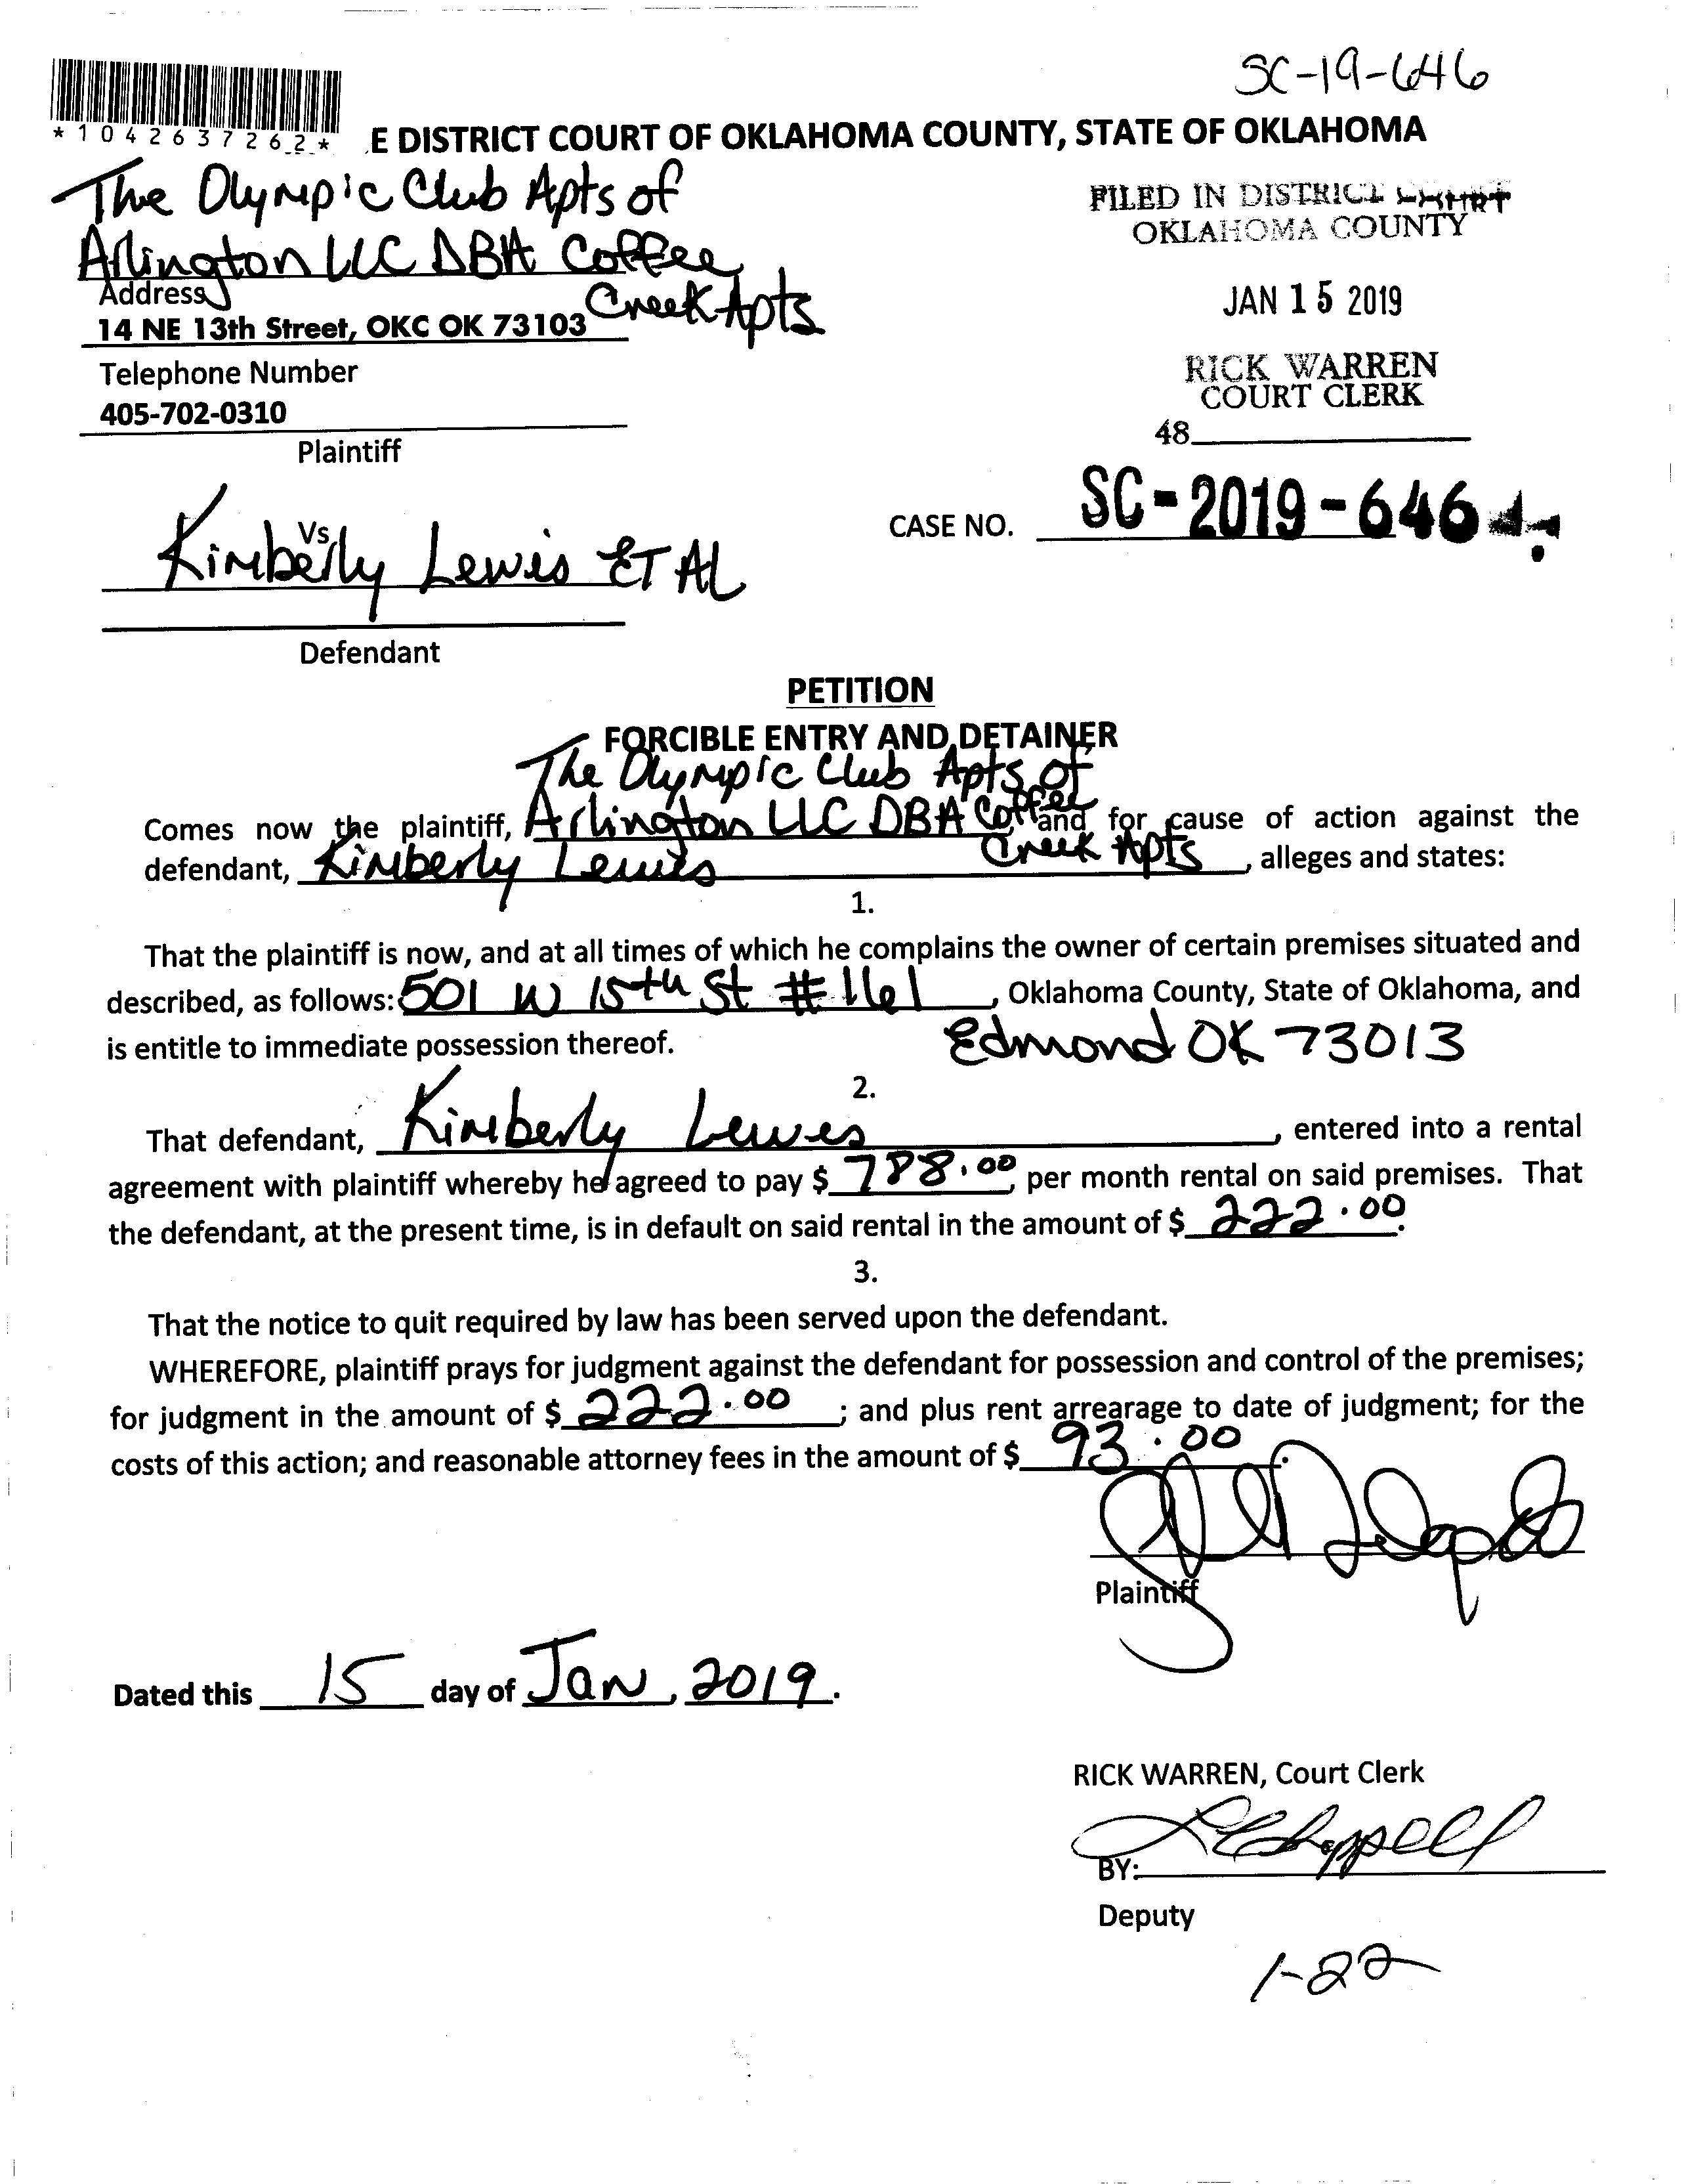 SC-19-646
*1042637262*
E DISTRICT COURT OF OKLAHOMA COUNTY, STATE OF OKLAHOMA
The Olympic Club Apts of
Arlington LLC DBA Coffee
Creek Apts
Address
14 NE 13th Street, OKC OK 73103
Telephone Number
405-702-0310
Plaintiff
FILED IN DISTRICT COURT
OKLAHOMA COUNTY
JAN 15 2019
RICK WARREN
COURT CLERK
48
Vs
Kimberly Lewis ET AL
Defendant
CASE NO. SC-2019-646
PETITION
FORCIBLE ENTRY AND DETAINER
The Olympic Club Apts of
Comes now the plaintiff, Arlington LLC DBA Coffee and for cause of action against the
Creek Apts
defendant, Kimberly Lewis, alleges and states:
1.
That the plaintiff is now, and at all times of which he complains the owner of certain premises situated and
described, as follows: 501 W 15th St #161, Oklahoma County, State of Oklahoma, and
is entitle to immediate possession thereof. Edmond OK 73013
2.
That defendant, Kimberly Lewis, entered into a rental
agreement with plaintiff whereby he agreed to pay $ 788.00, per month rental on said premises. That
the defendant, at the present time, is in default on said rental in the amount of $ 222.00.
3.
That the notice to quit required by law has been served upon the defendant.
WHEREFORE, plaintiff prays for judgment against the defendant for possession and control of the premises;
for judgment in the amount of $ 222.00 ; and plus rent arrearage to date of judgment; for the
costs of this action; and reasonable attorney fees in the amount of $ 93.00.
Plaintiff
Dated this 15 day of Jan, 2019.
RICK WARREN, Court Clerk
BY:
Deputy
1-22